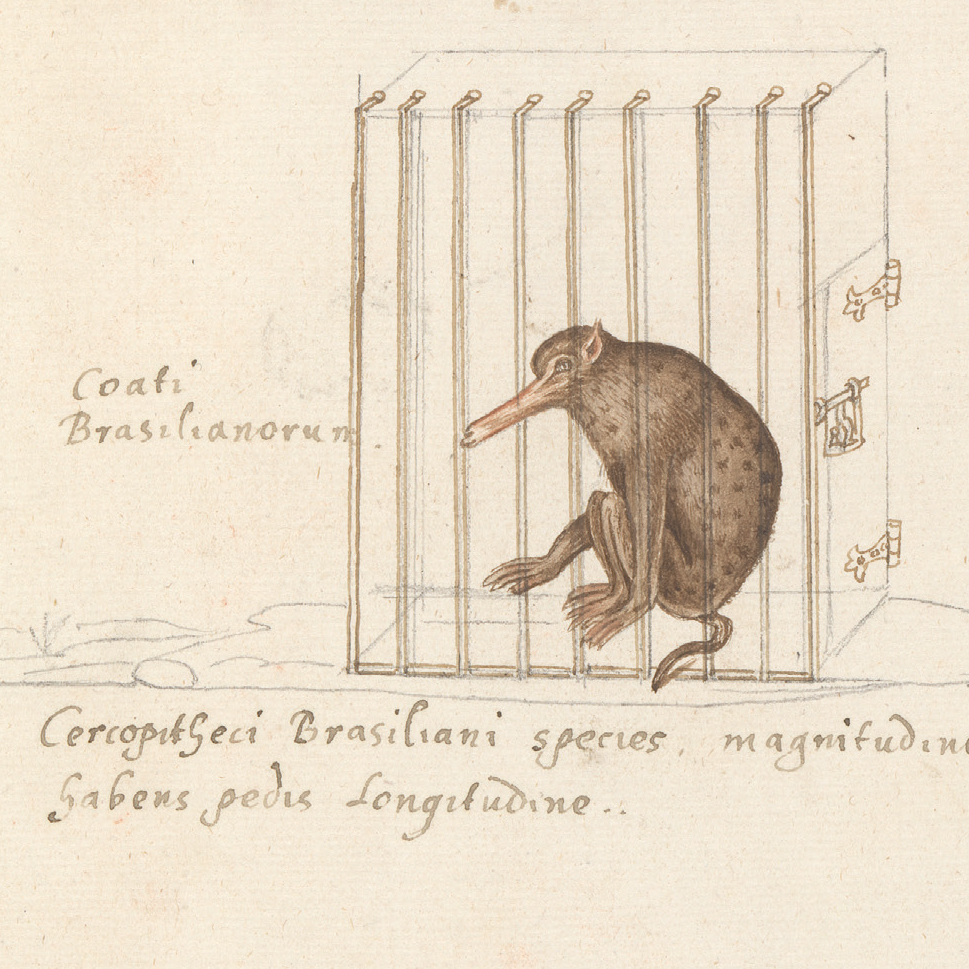 Coati
Brasilianorum.
Cercopitheci Brasiliani species, magnitudine
habens pedis Longitudine..